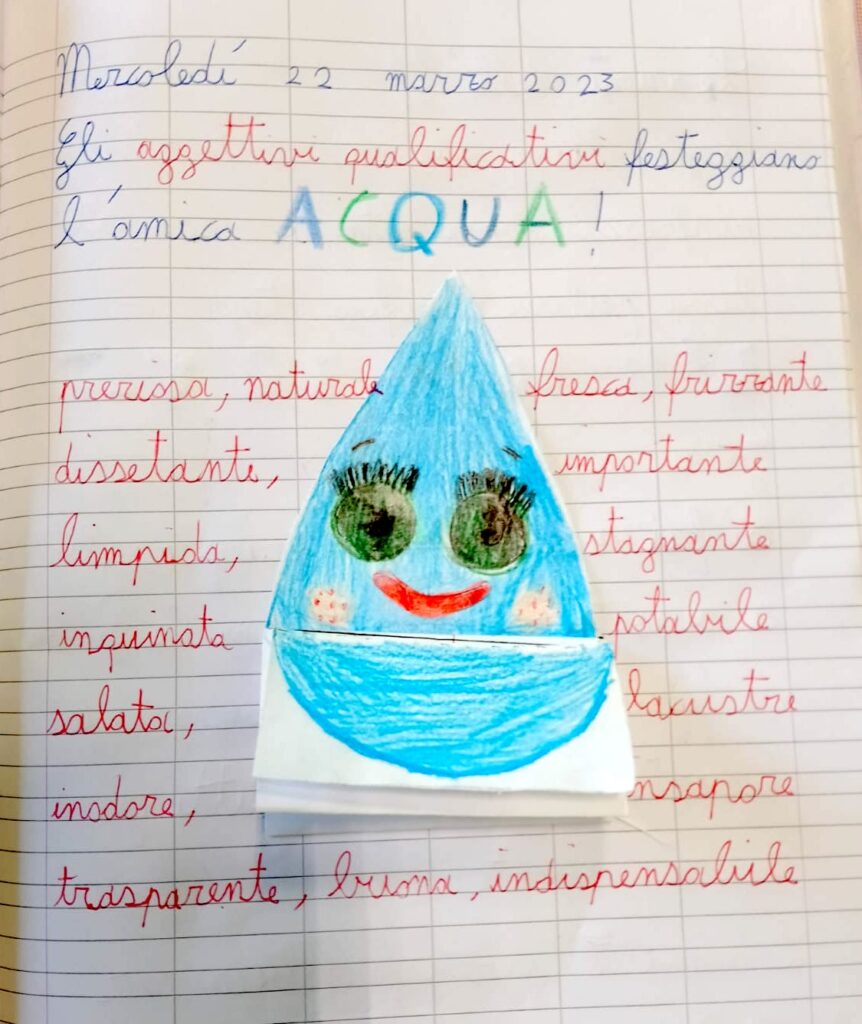 Mercoledí 22 marzo 2023
Gli aggettivi qualificativi festeggiano
l'amica ACQUA!
preziosa, naturale fresca, frizzante
dissetante, importante
limpida, stagnante
inquinata potabile
salata, lacustre
inodore, nsapore
trasparente, buona, indispensabile